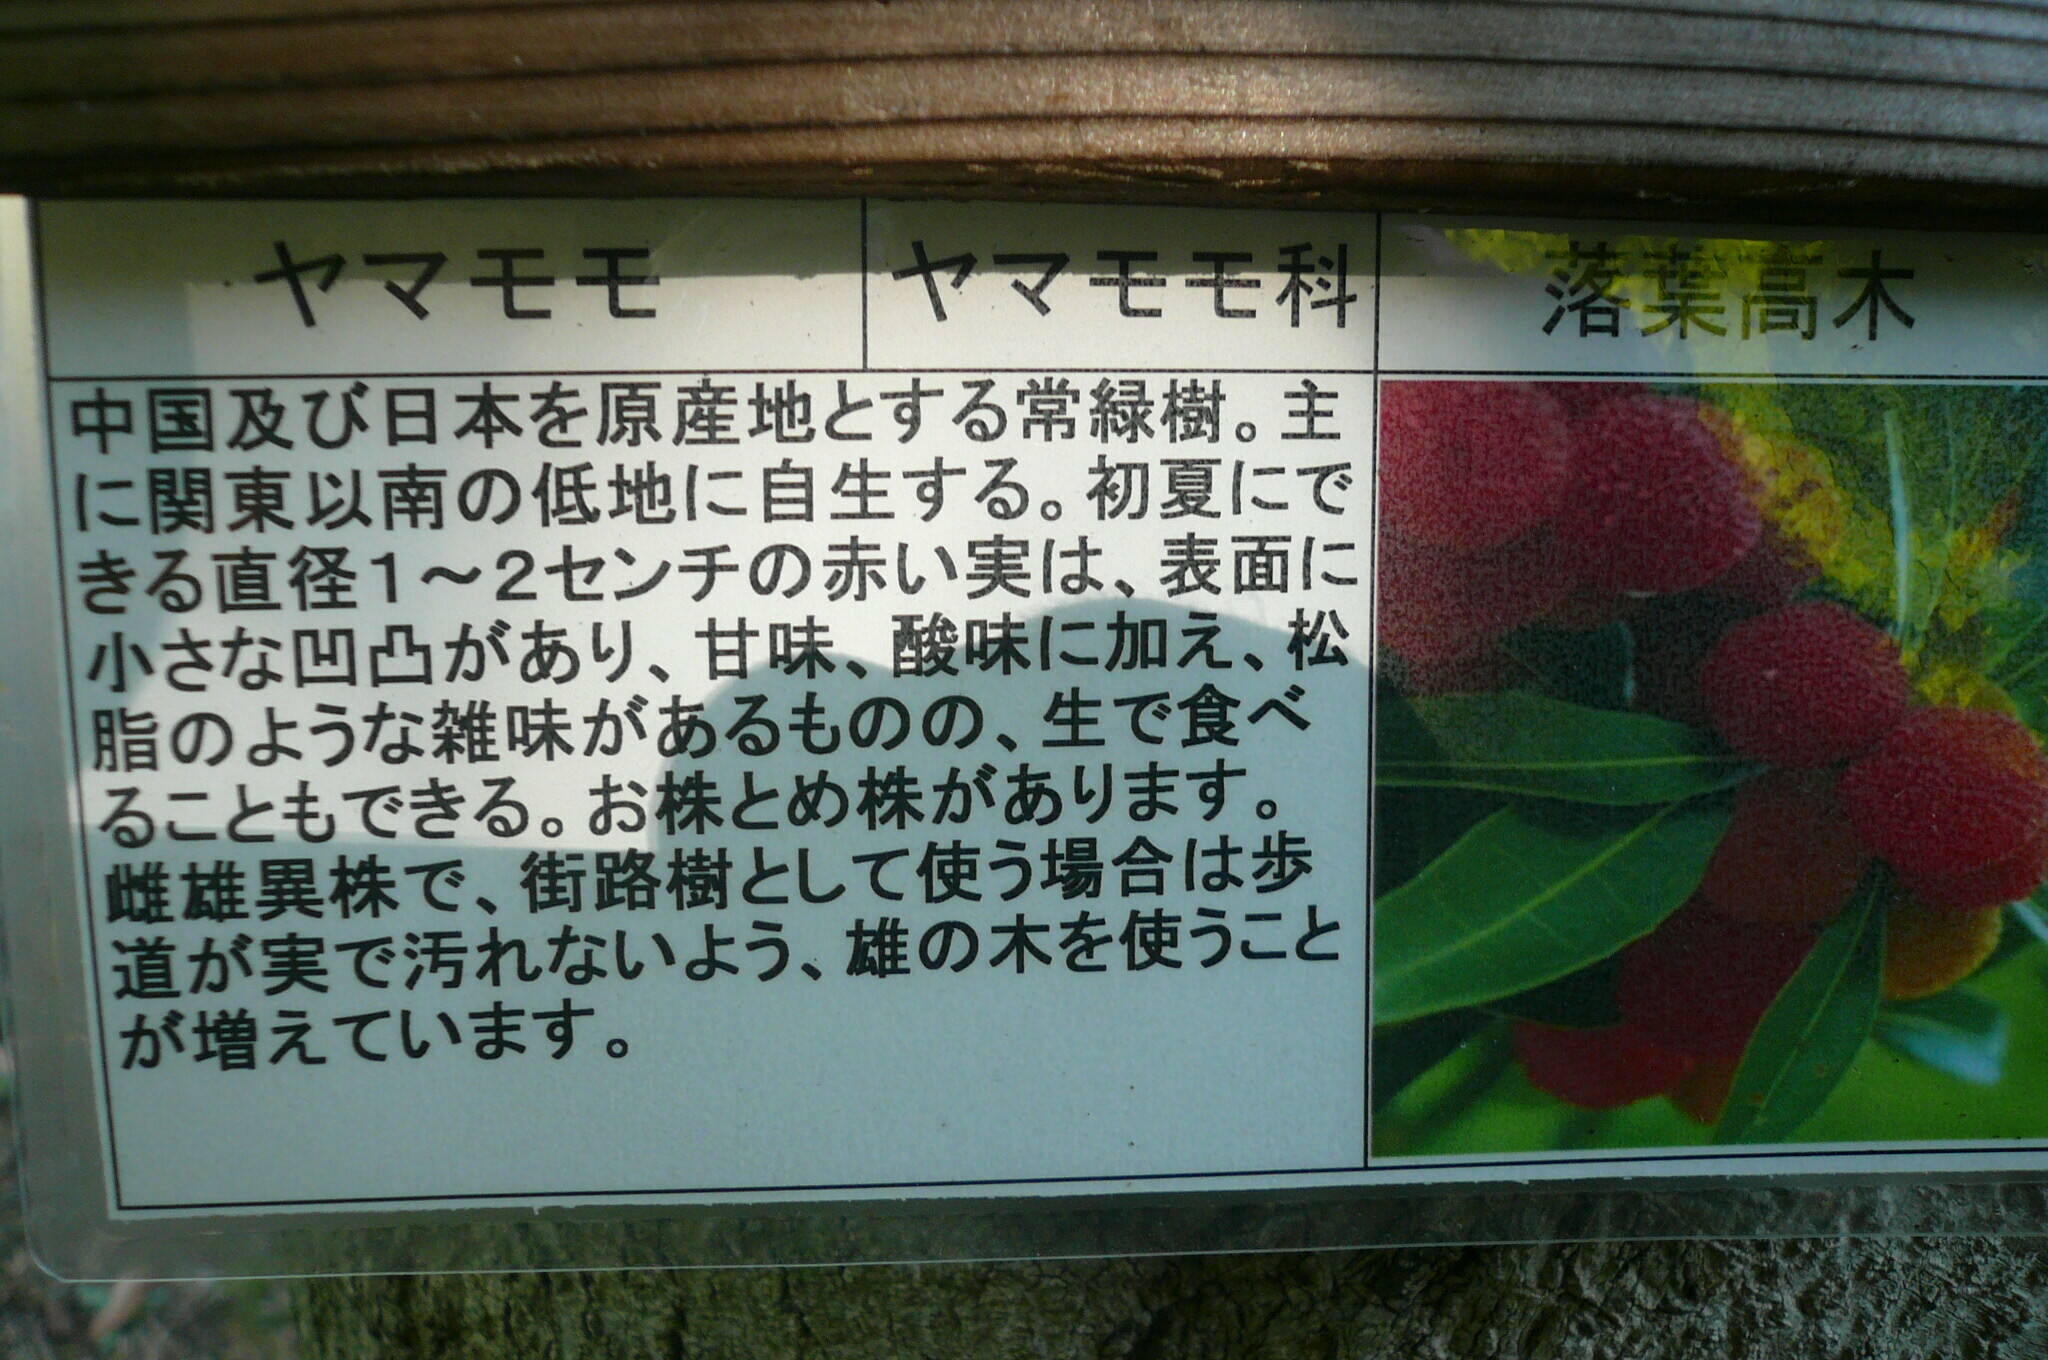 ヤマモモ ヤマモモ科 落葉高木
中国及び日本を原産地とする常緑樹。主
に関東以南の低地に自生する。初夏にで
きる直径1～2センチの赤い実は、表面に
小さな凹凸があり、甘味、酸味に加え、松
脂のような雑味があるものの、生で食べ
ることもできる。お株とめ株があります。
雌雄異株で、街路樹として使う場合は歩
道が実で汚れないよう、雄の木を使うこと
が増えています。